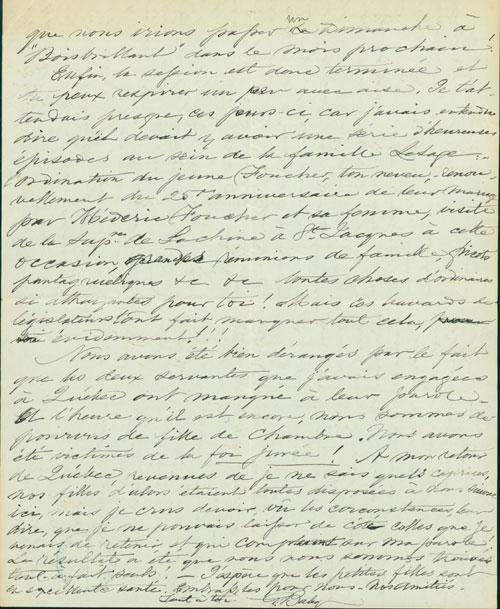 que nous irions passer un Dimanche à
"Boisbrillant" dans le mois prochain!
Enfin, la session est donc terminée et
tu peux respirer un peu avec aise. Je t'at-
tendais presque, ces jours-ci, car j'avais entendu
dire qu'il devait y avoir une serie d'heureux
épisodes au sein de la famille Lesage:-
Ordination du jeune Foucher, ton neveu, renou-
vellement du 25e anniversaire de leur mariage
par Médéric Foucher et sa femme, visite
de la Supre de Lachine à St. Jacques à cette
occasion, grandes réunions de famille,
pantagruéliques &c &c toutes choses d'ordinaire
si attrayantes pour toi! Mais ces bavards de
législateurs t'ont fait manquer tout cela,
évidemment!!!
Nous avons été bien dérangés par le fait
que les deux servantes que j'avais engagées
à Québec ont manqué à leur parole.
A l'heure qu'il est, encore, nous sommes dé-
pourvus de fille de chambre. Nous avons
été victimes de la foi jurée! A mon retour
de Québec, revenues de je ne sais quels caprices,
nos filles d'alors étaient toutes disposées à
ici, mais je crus devoir, vu les circonstances, leur
dire, que je ne pouvais laisser de côté celles que je
venais de retenir et qui comptaient sur ma parole!
Le résultat a été que nous nous sommes trouvés
tout à fait seuls. - J'espère que les petites filles sont
en excellente santé. Embrasse les pour nous. - Nos amitiés.
Tout à toi G Baby